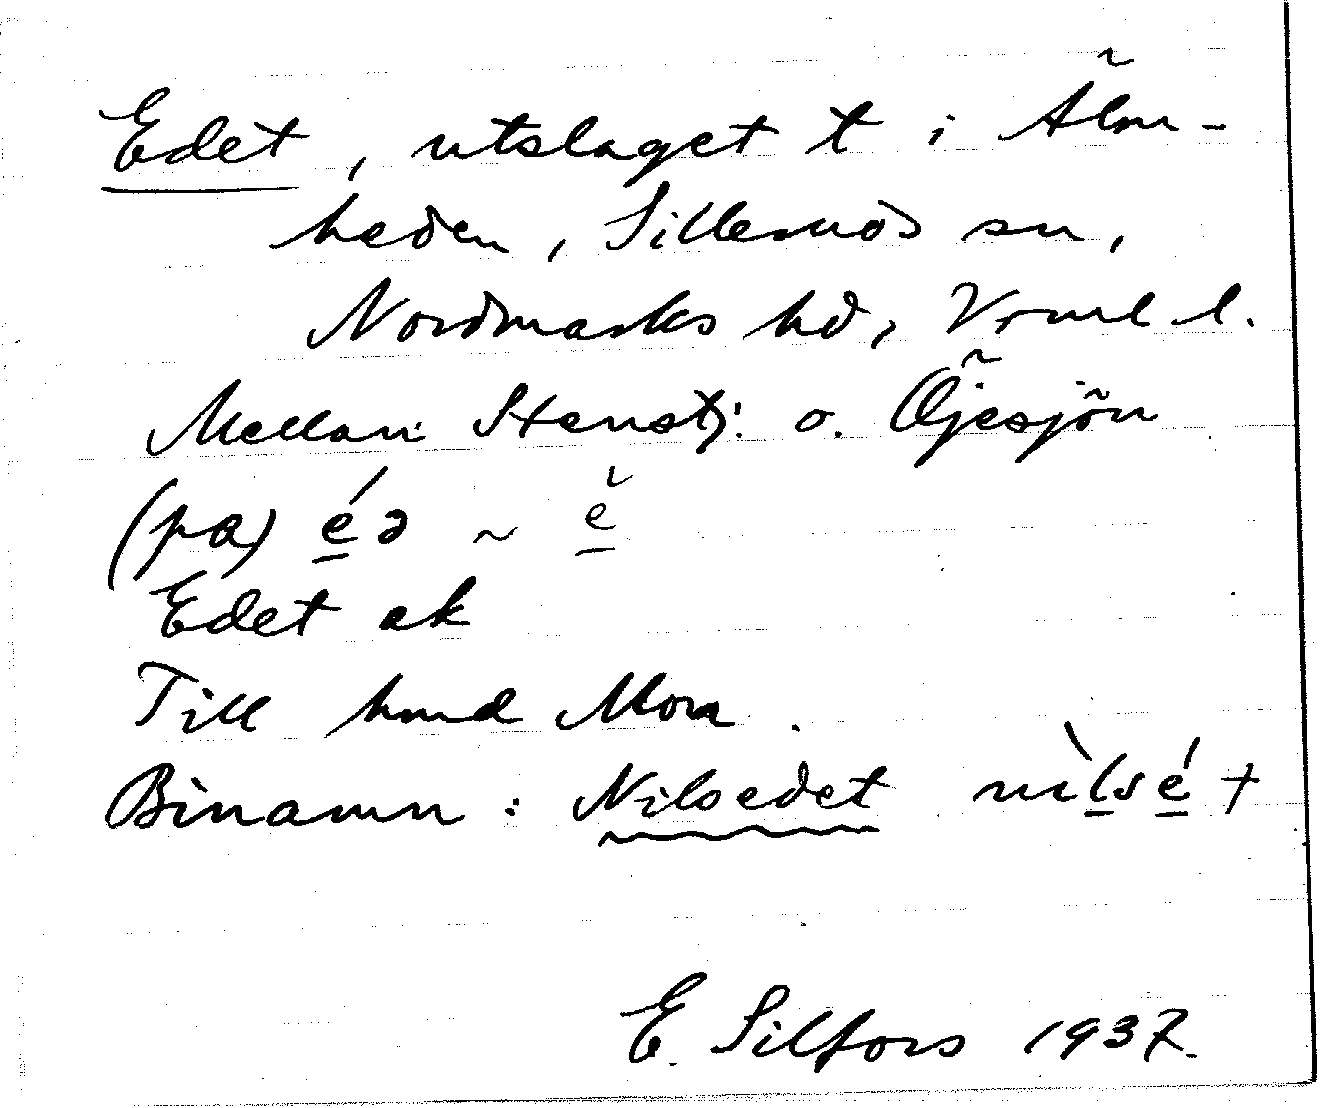 Edet, utslaget t i Älm-
heden, Sillerud sn,
Nordmarks hd, Vrml l.
Mellan Stenstj: o. Öjesjön
(pa) é ə ~ ě
Edet ek
Till hmd Mon.
Binamn: Nilsedet nìlsé +
E. Silfors 1937.